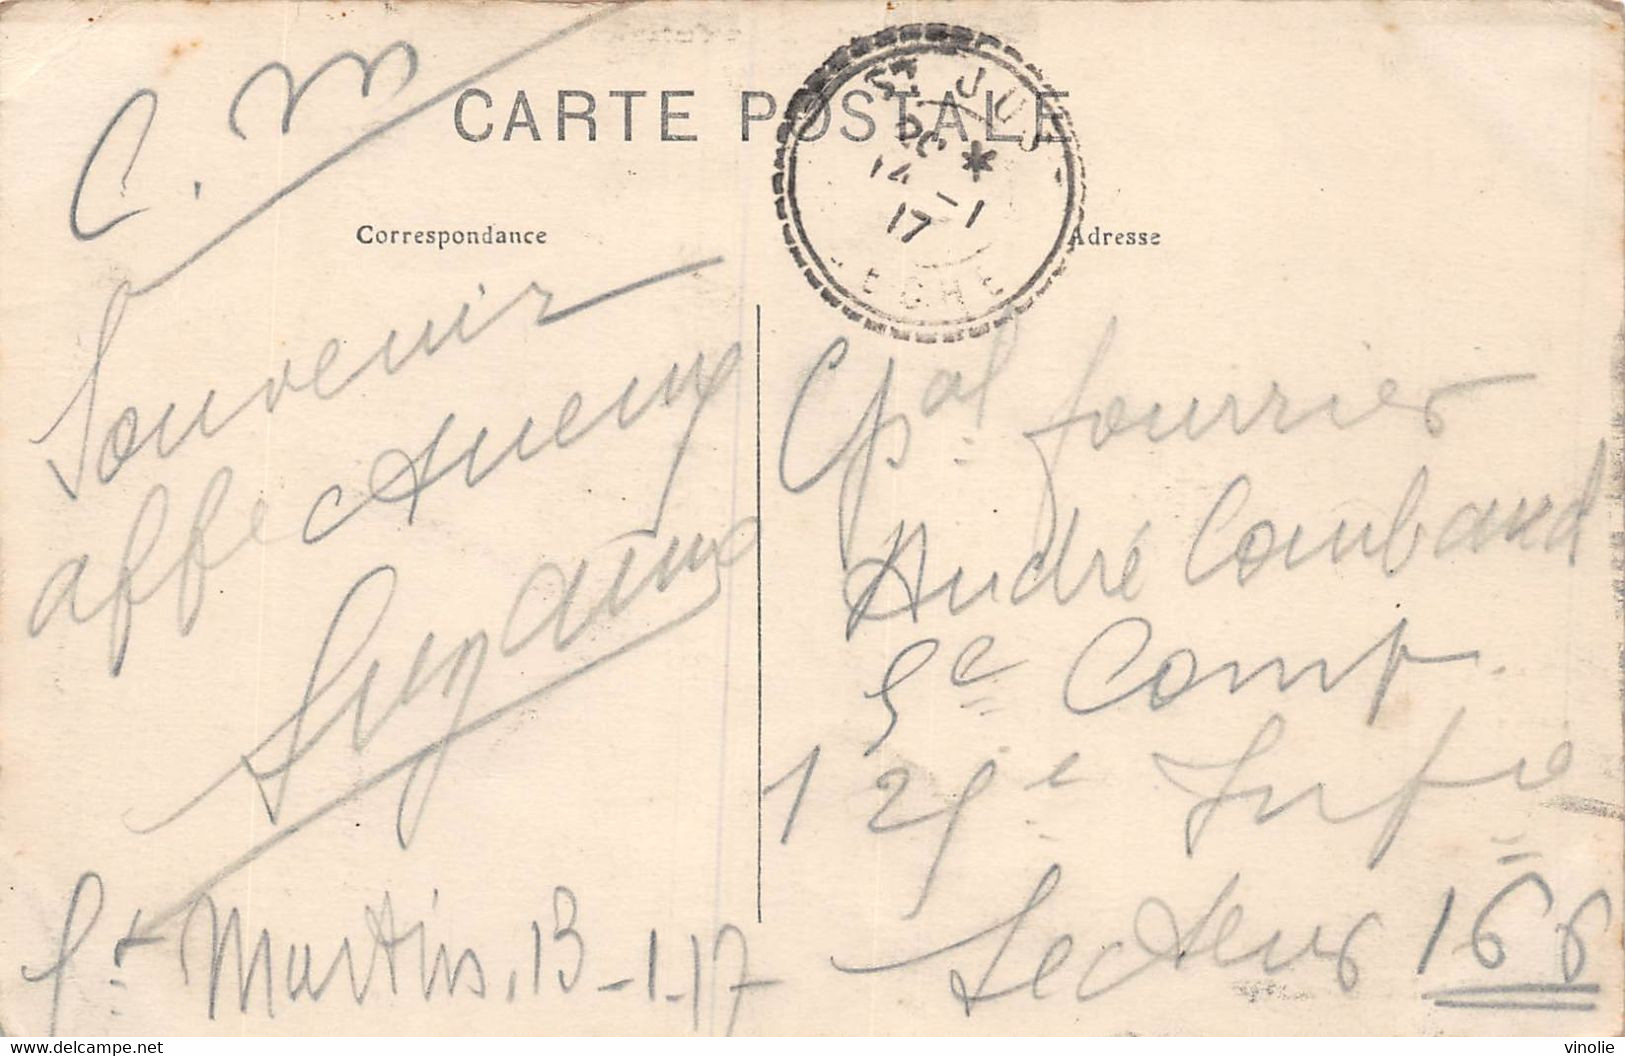 C. M
CARTE POSTALE
ST JUS
14 -1
17
ECHE
Correspondance
Adresse
Souvenir
affectueux
Suzanne
St Martin, 13-1-17
Cpal fourrier
André Combaud
5e Comp.
125e Infie
Secteur 166
vinolie
delcampe.net